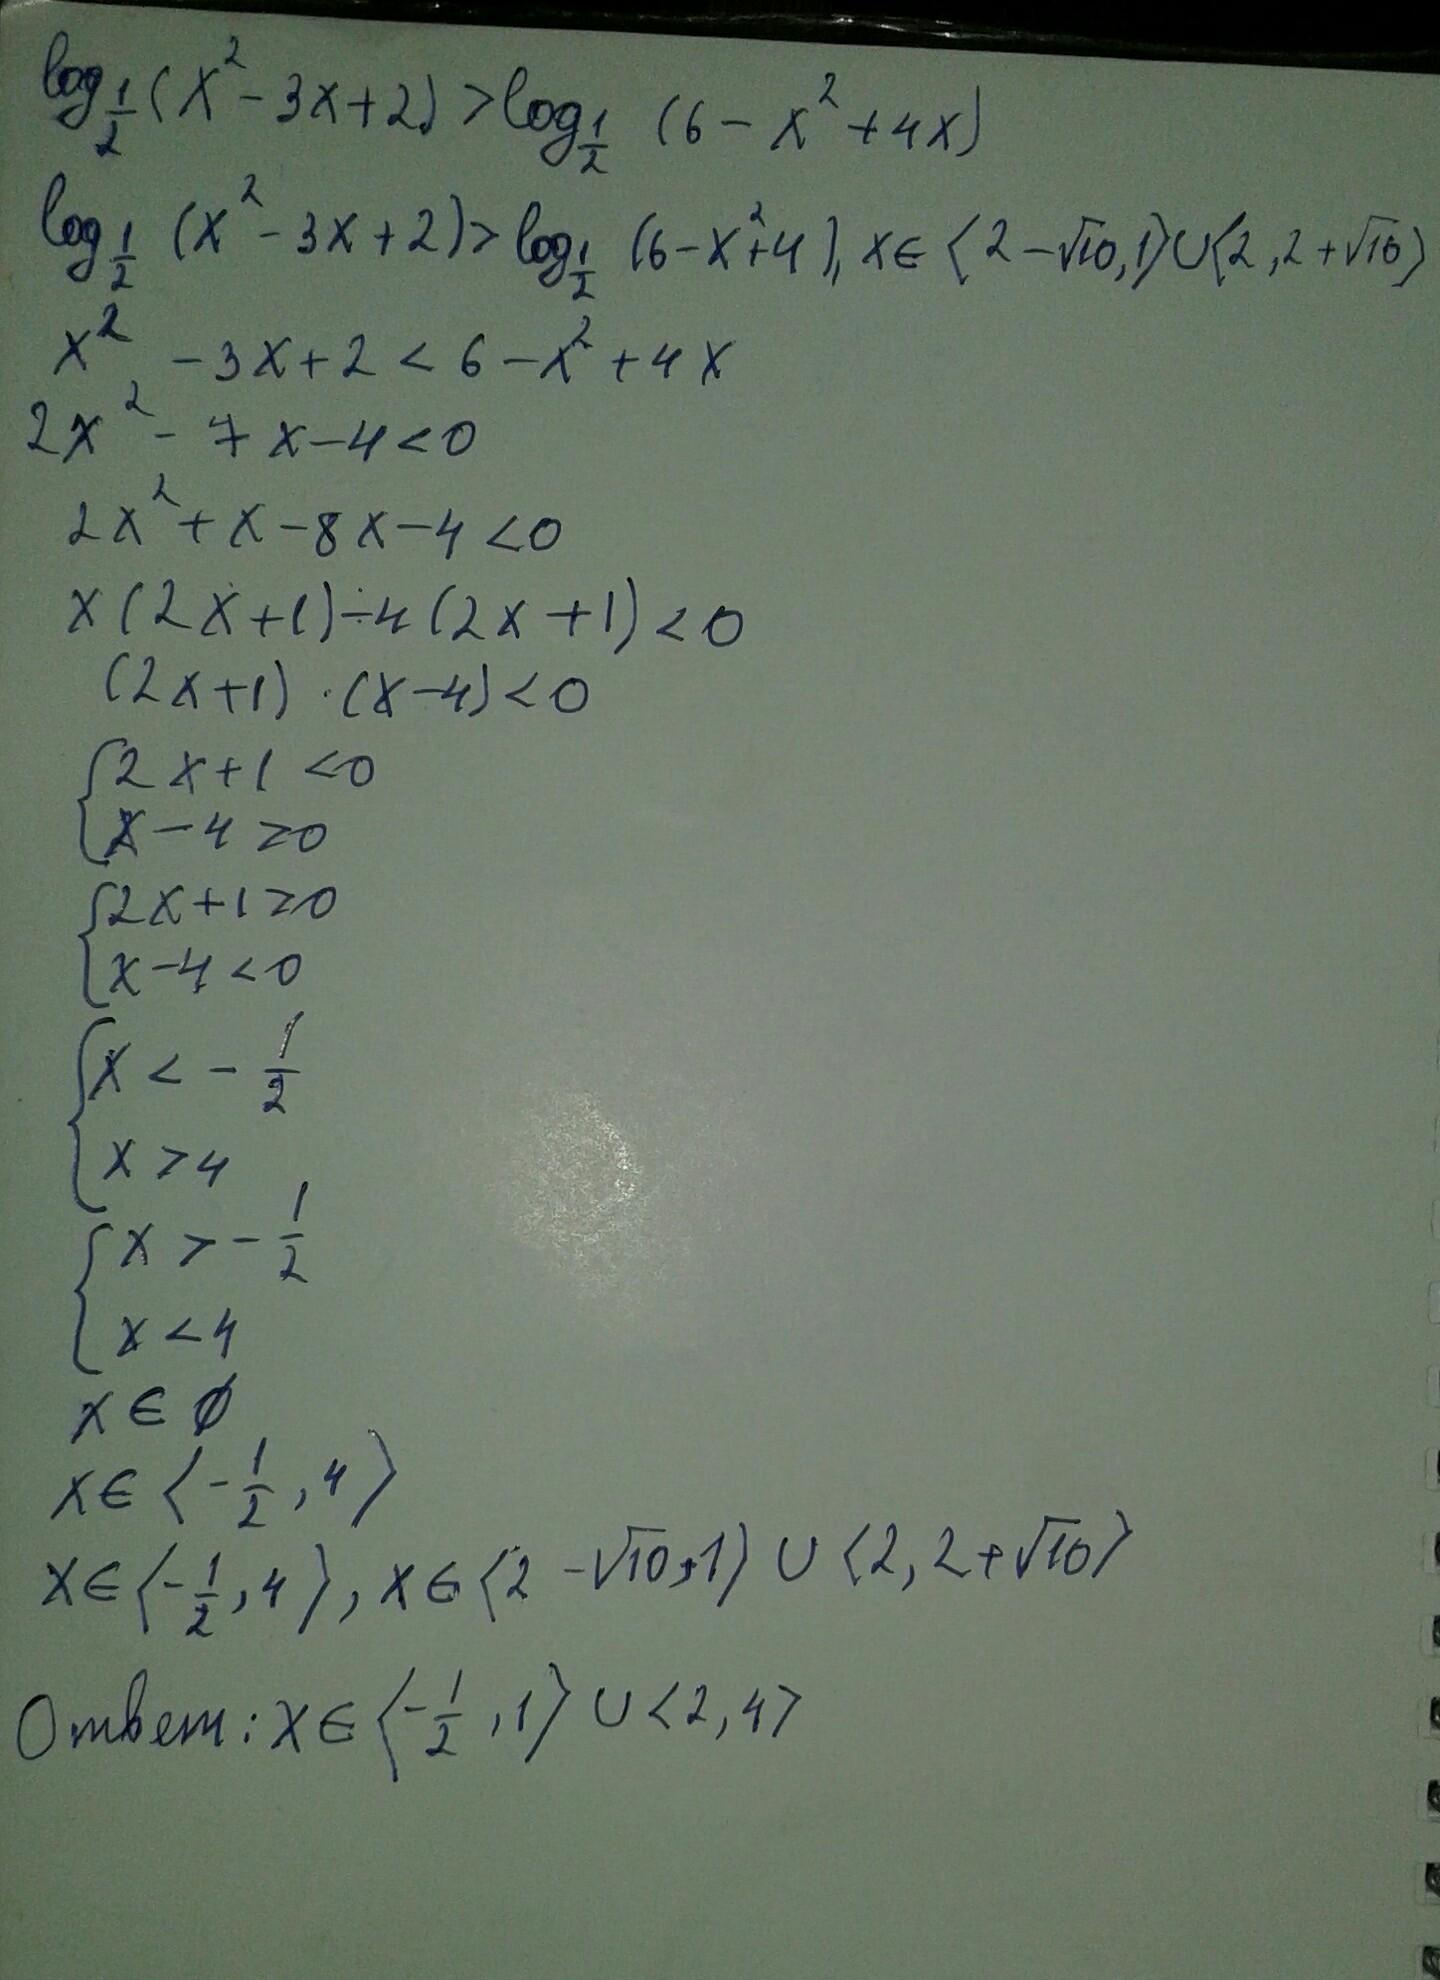 log_{1/2}(x² - 3x + 2) > log_{1/2} (6 - x² + 4x)
log_{1/2} (x² - 3x + 2) > log_{1/2} (6 - x² + 4), x ∈ ⟨2 - √10, 1⟩ ∪ ⟨2, 2 + √10⟩
x² - 3x + 2 < 6 - x² + 4x
2x² - 7x - 4 < 0
2x² + x - 8x - 4 < 0
x(2x + 1) - 4(2x + 1) < 0
(2x + 1) · (x - 4) < 0
{ 2x + 1 < 0
x - 4 > 0
{ 2x + 1 > 0
x - 4 < 0
{ x < - 1/2
x > 4
{ x > - 1/2
x < 4
x ∈ ∅
x ∈ ⟨- 1/2, 4⟩
x ∈ ⟨- 1/2, 4⟩, x ∈ ⟨2 - √10, 1⟩ ∪ ⟨2, 2 + √10⟩
Ответ: x ∈ ⟨- 1/2, 1⟩ ∪ ⟨2, 4⟩